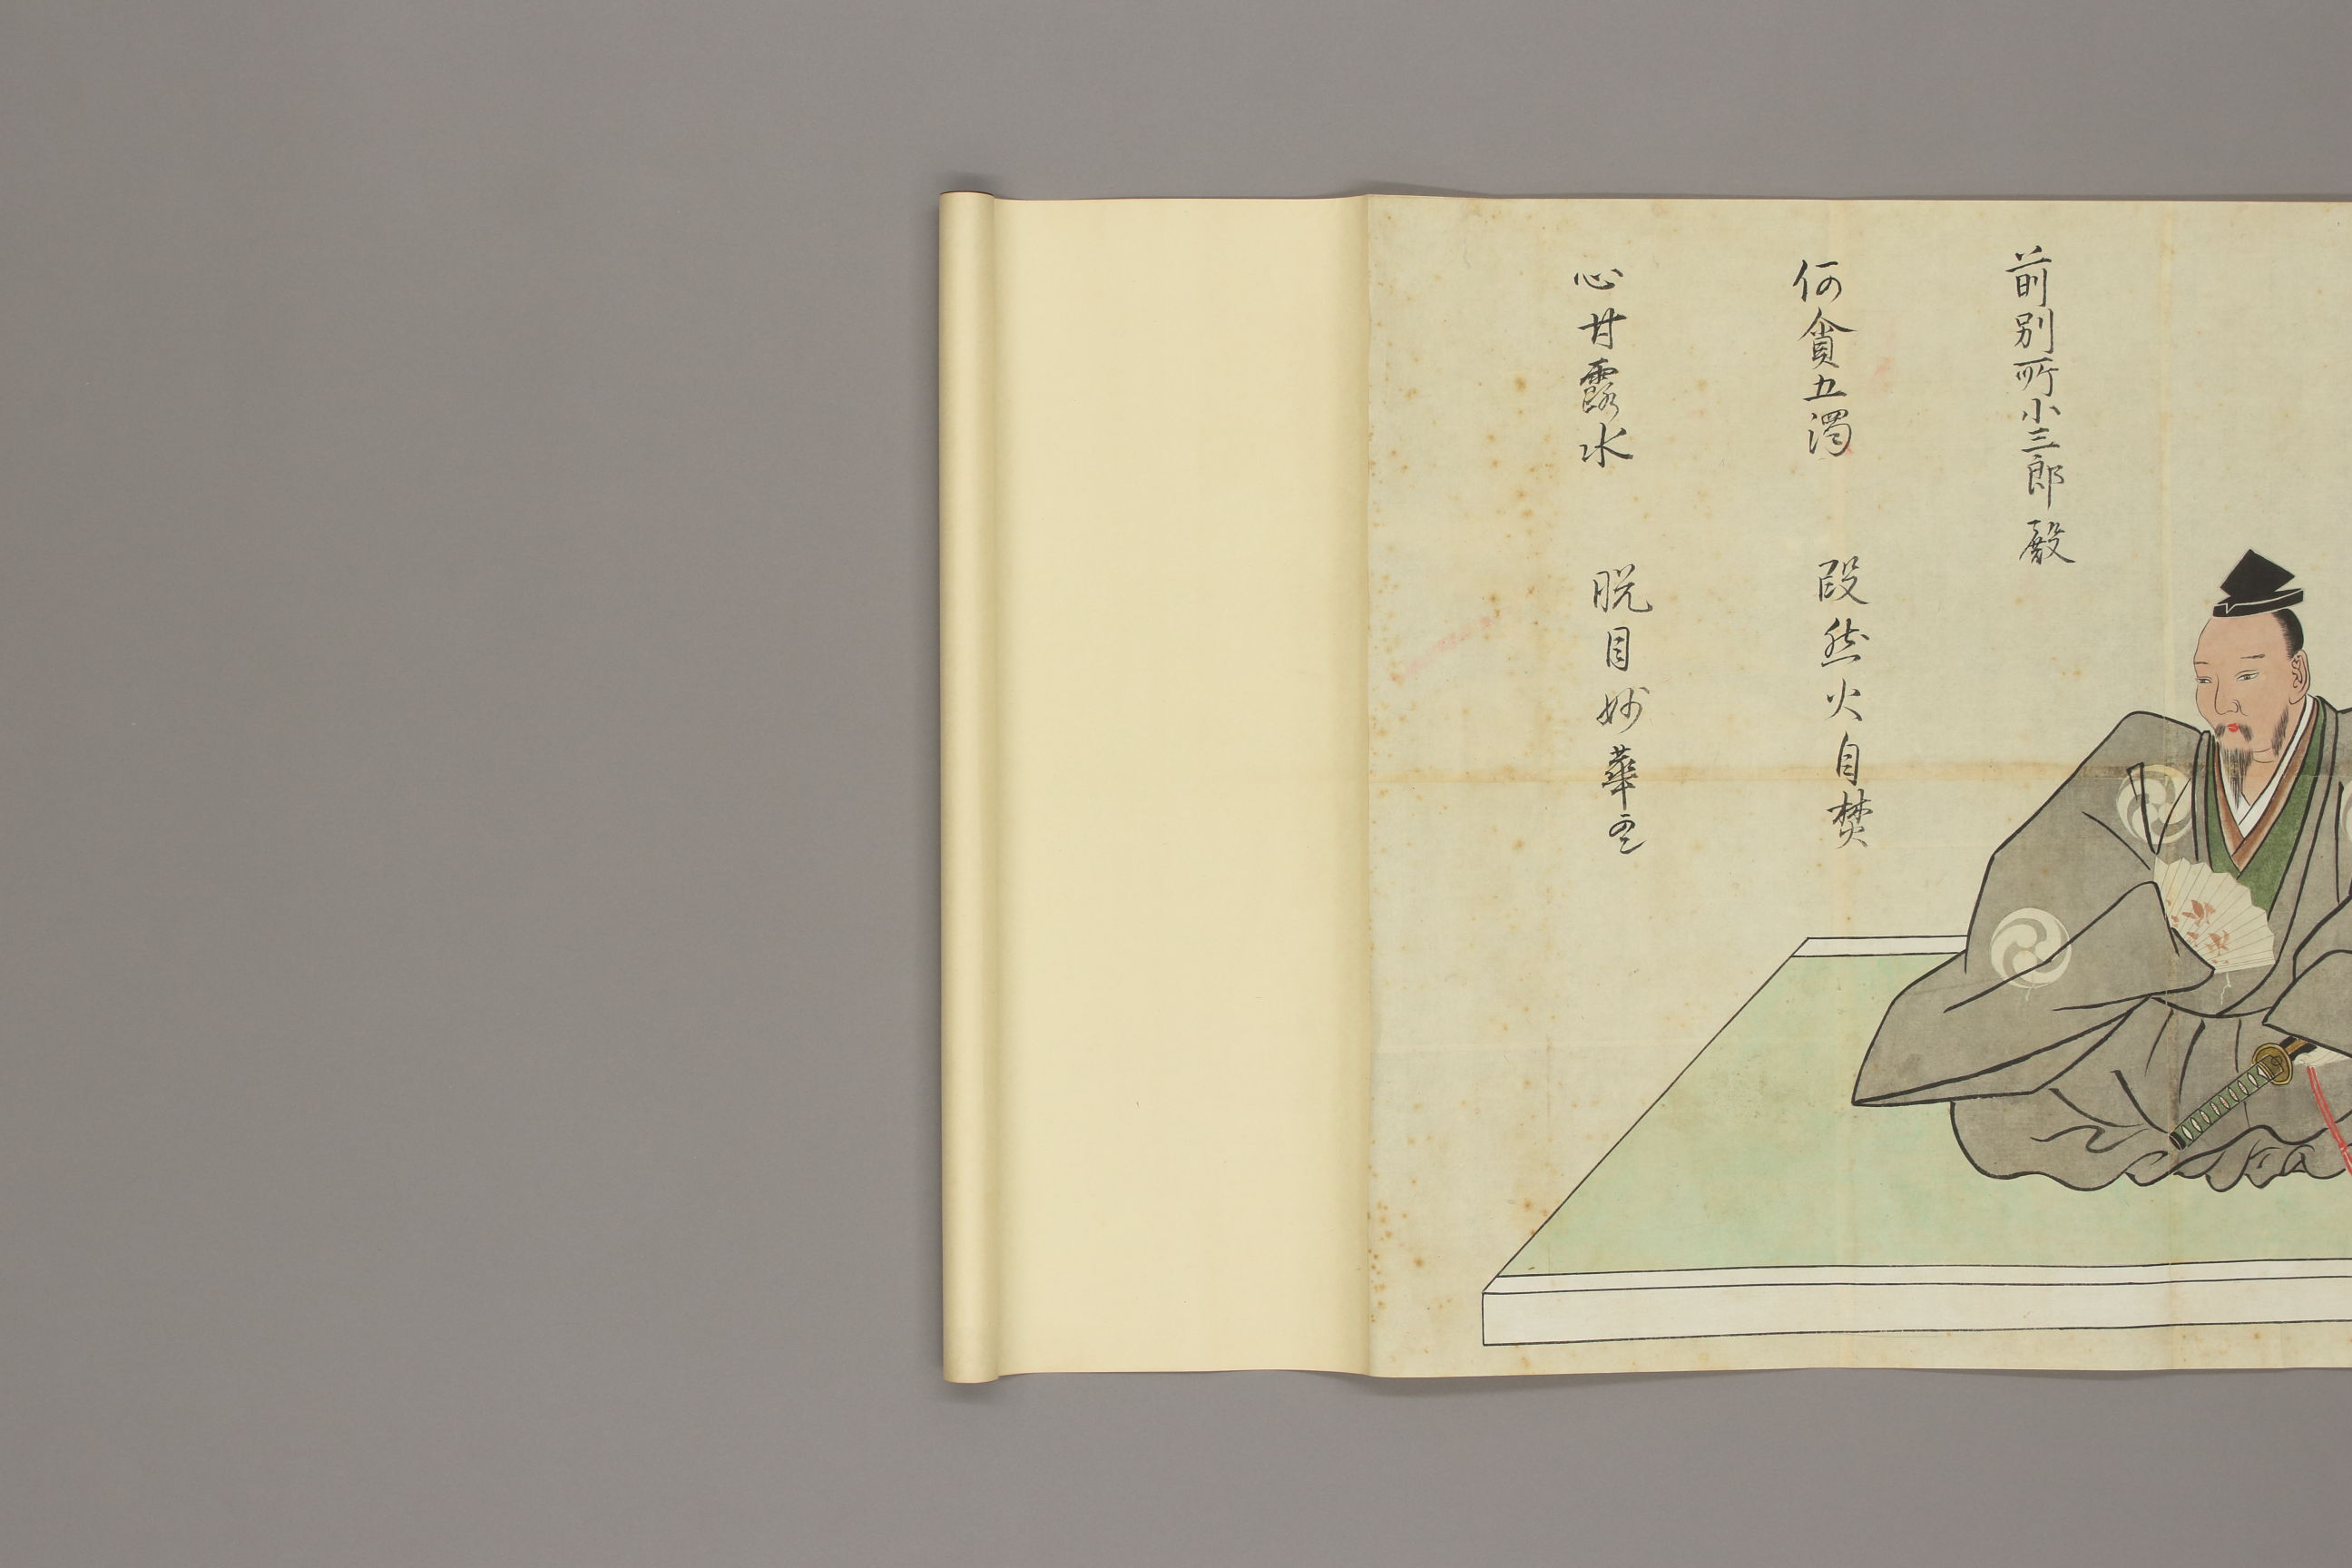 前別所小三郎殿
何貪五濁 段然火自焚
心甘露水 脱目妙華云